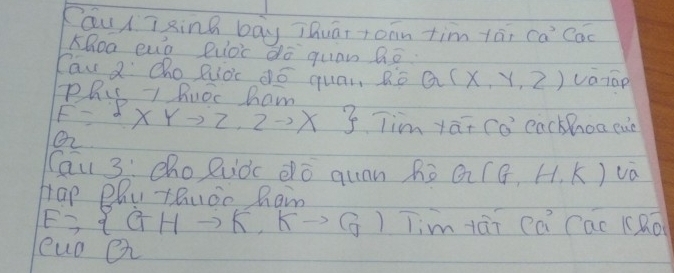 Câu 1 Trình bày Thuật toán tìm tất cả các
khoá của lược đồ quan hệ.
Câu 2: Cho lược đồ quan hệ Q(X, Y, Z) và tập
phụ thuộc hàm
F = { XY → Z, Z → X }. Tìm tất cả các khoá của
Q
Câu 3: Cho lược đồ quan hệ Q(G, H, K) và
tập phụ thuộc hàm
F = { GH → K, K → G ) Tìm tất cả các khoá
của Q